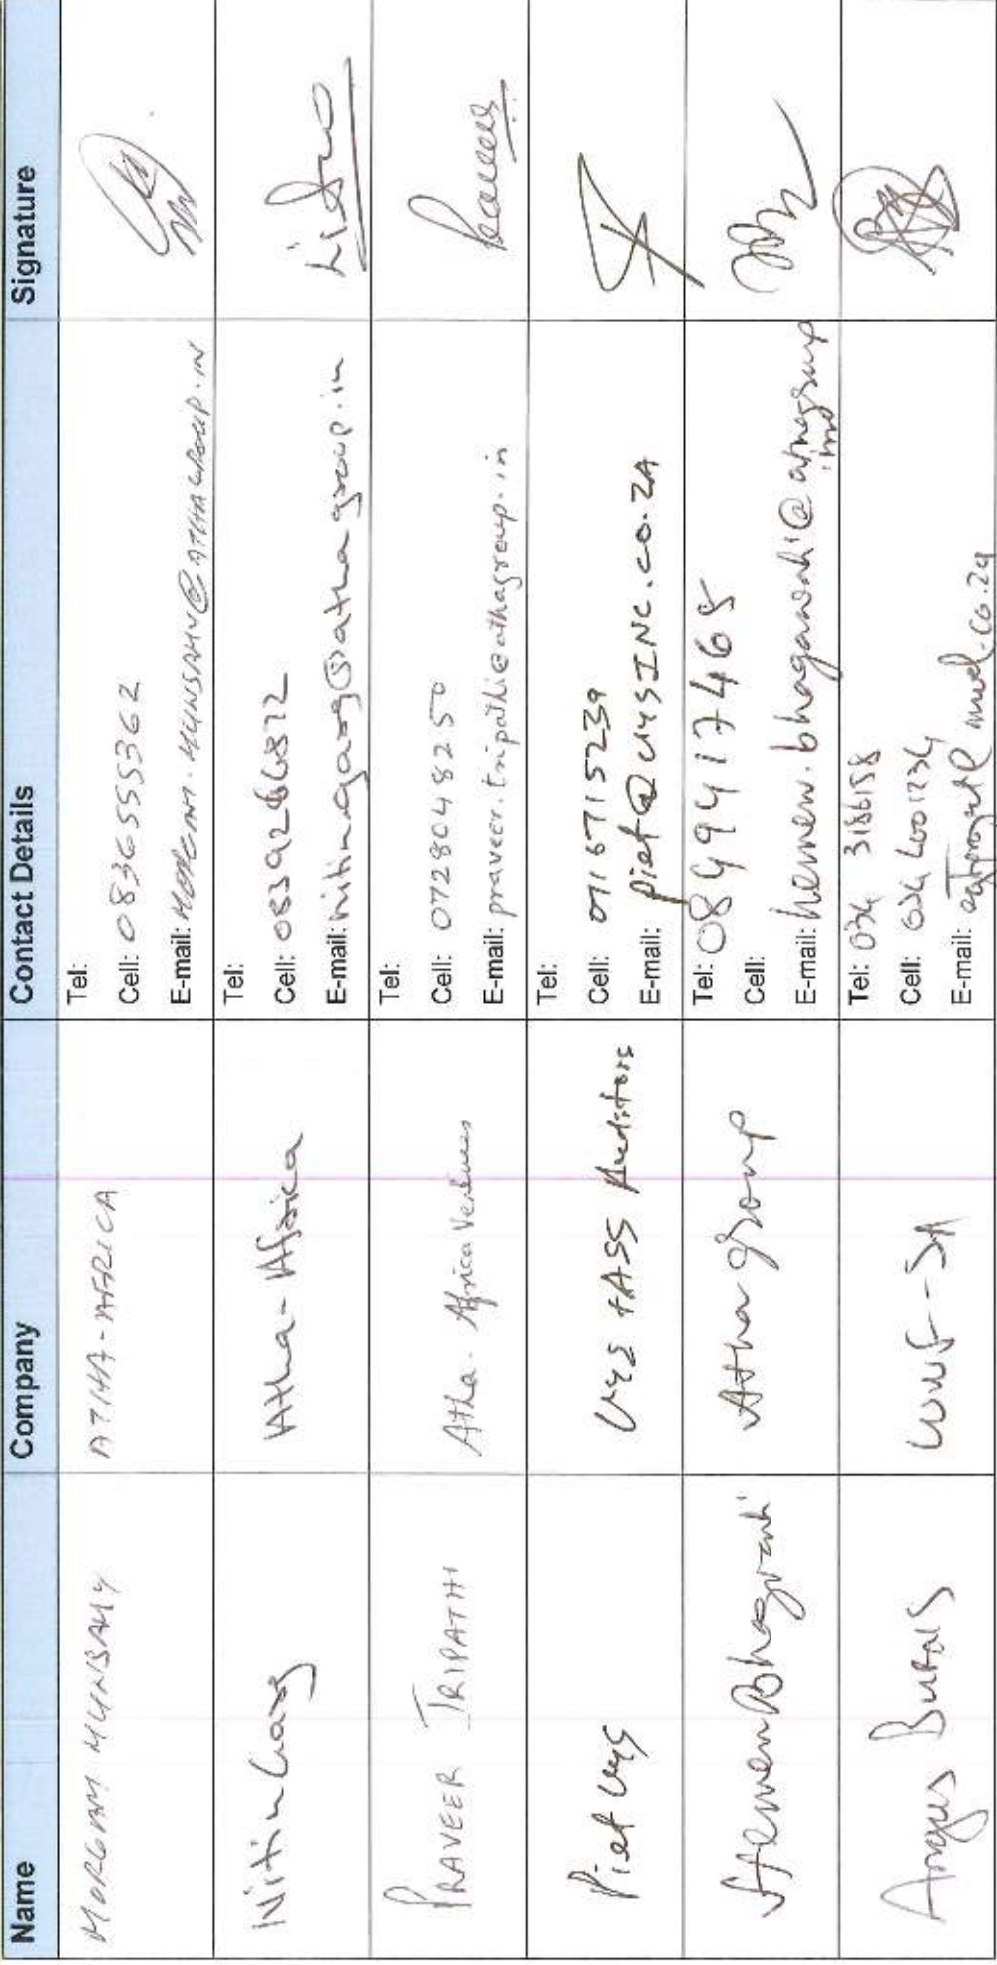 Name Company Contact Details Signature
MORGAN MUNSAMY ATHA-AFRICA Tel:
Cell: 0836555362
E-mail: MORGAN.MUNSAMY@ATHAGROUP.IN
Nitin Garg Atha-Africa Tel:
Cell: 0839266872
E-mail: nitingarg@athagroup.in
PRAVEER TRIPATHI Atha-Africa Ventures Tel:
Cell: 0728048250
E-mail: praveer.tripathi@athagroup.in
Piet Uys Uys + ASS Auditors Tel:
Cell: 0716715239
E-mail: piet@UYSINC.co.ZA
Hemen Bhagawati Atha group Tel: 0849417465
Cell:
E-mail: hemen.bhagawati@athagroup
Angus Burns WWF-SA Tel: 034 3186158
Cell:
E-mail: